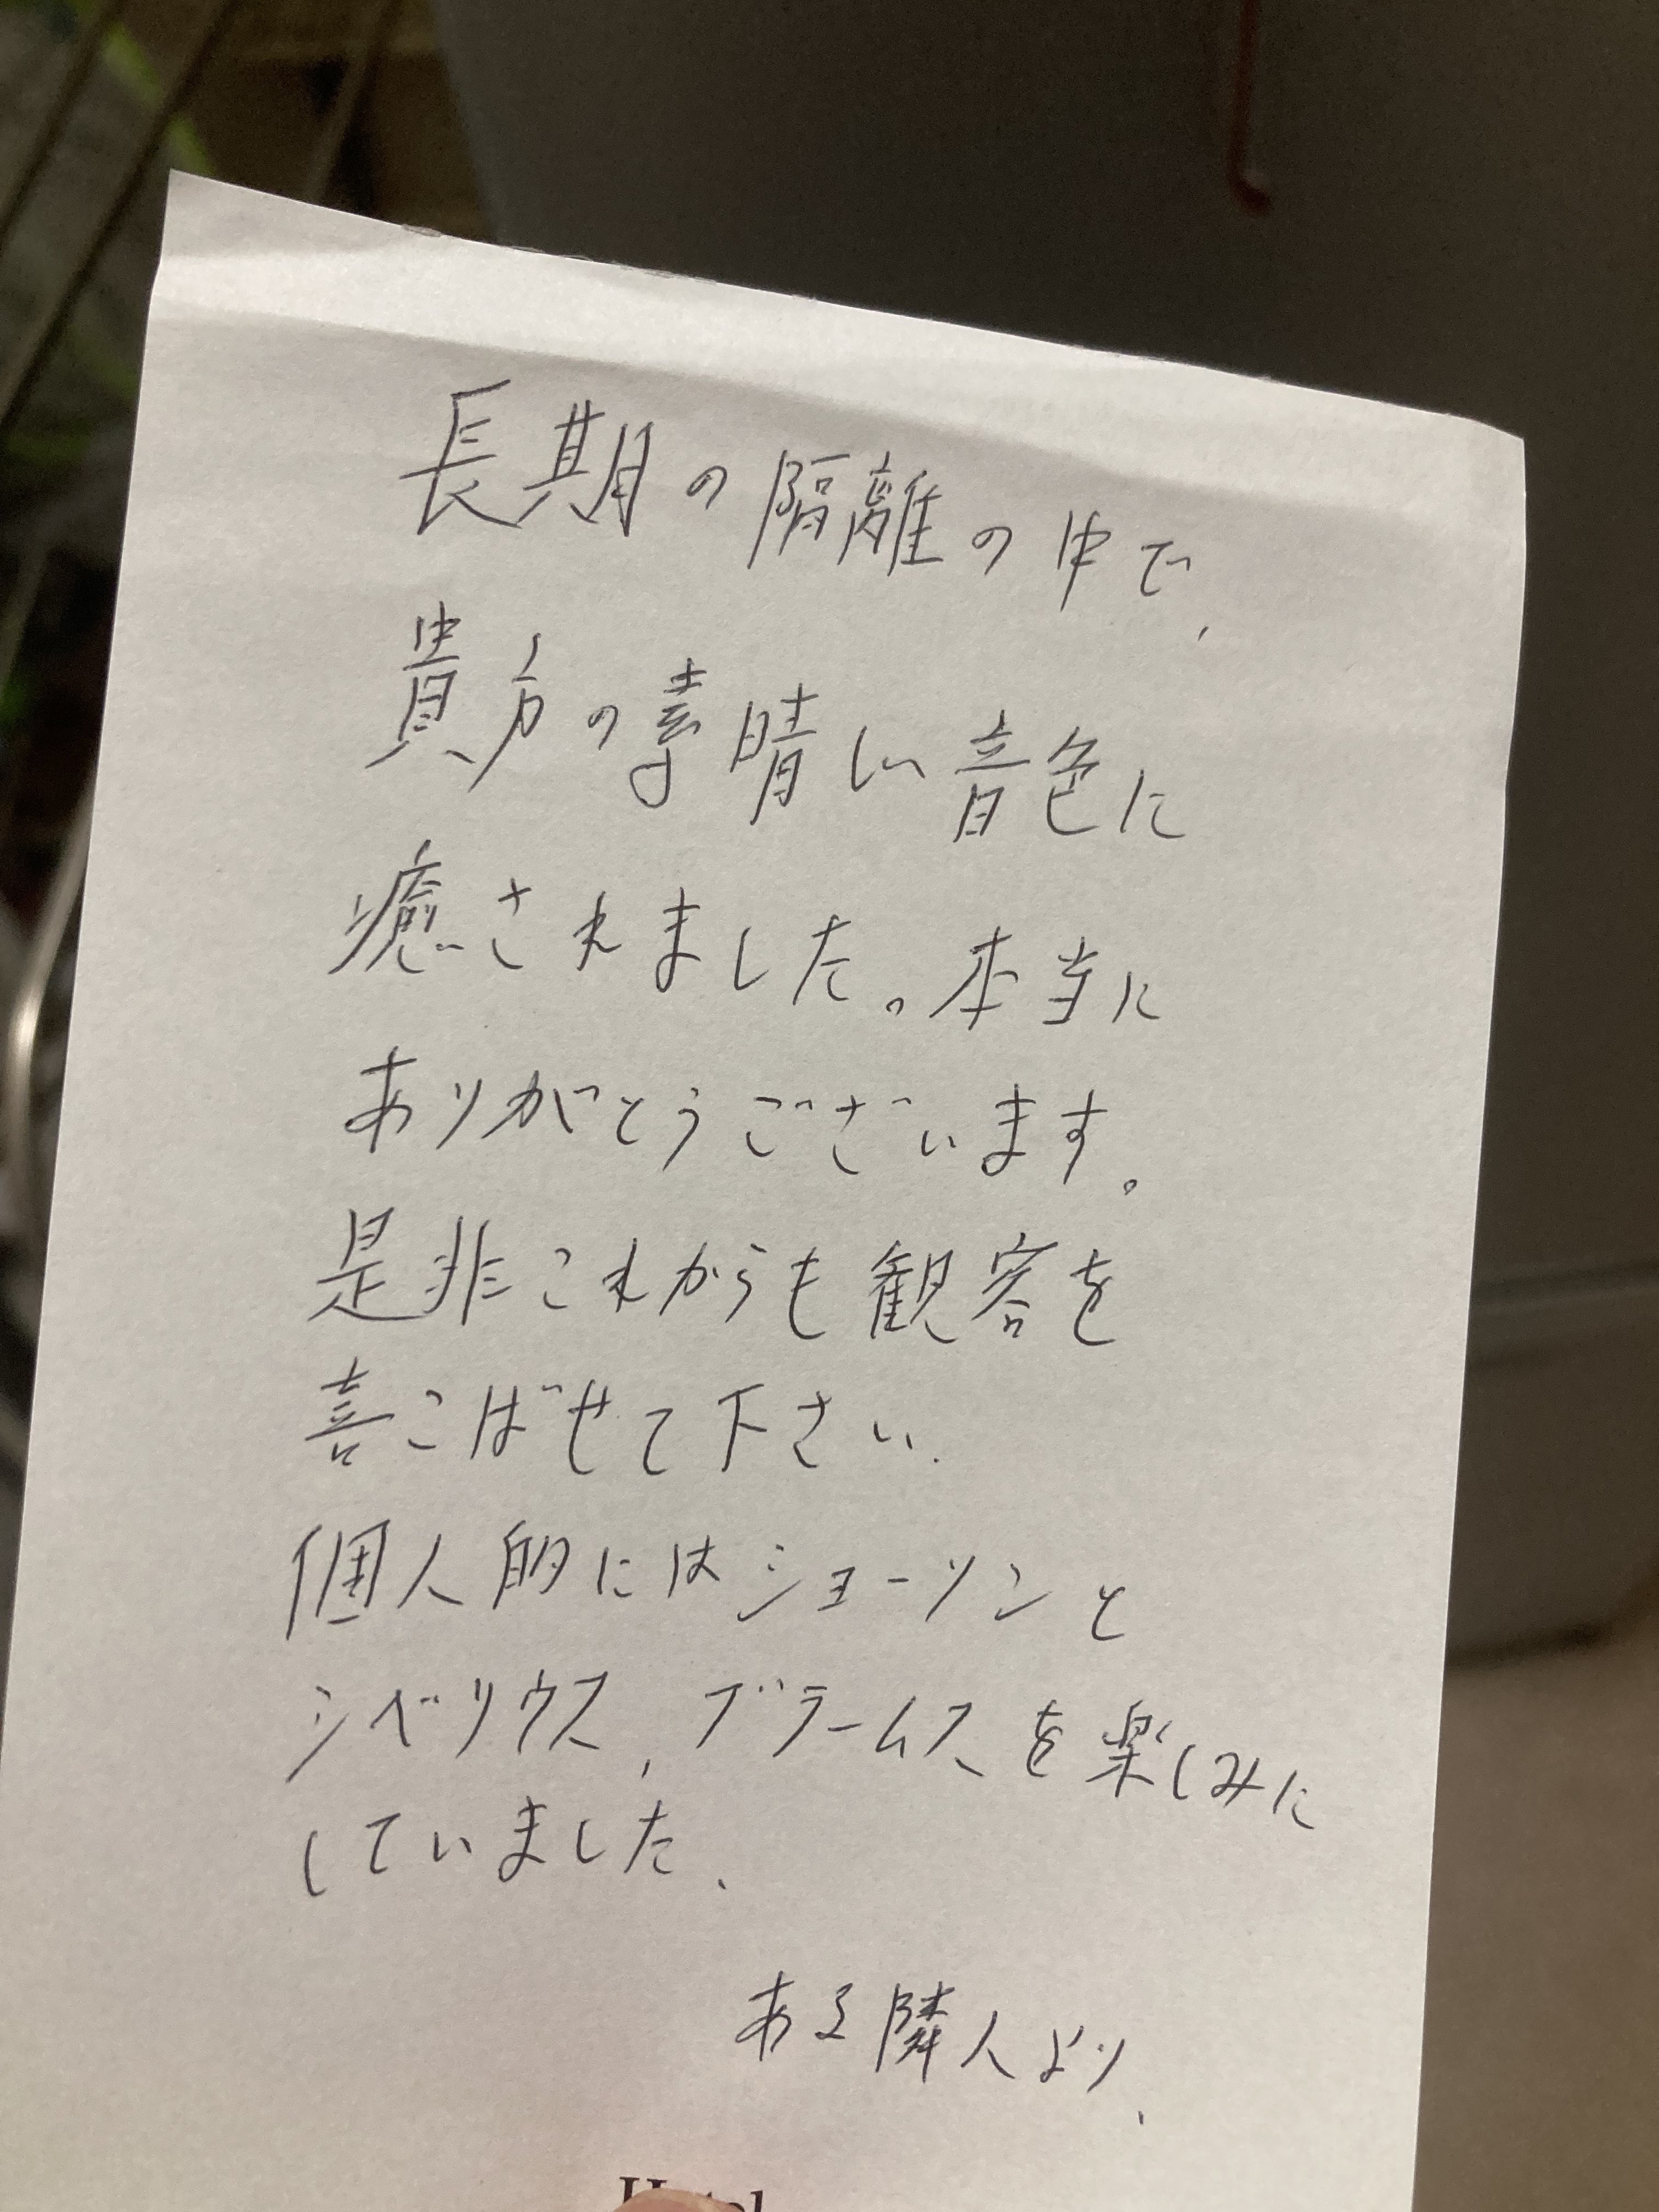 長期の隔離の中で、
貴方の素晴しい音色に
癒されました。本当に
ありがとうございます。
是非これからも観客を
喜こばせて下さい.
個人的にはショーソンと
シベリウス、ブラームスを楽しみに
していました、
ある隣人より、
Hotel